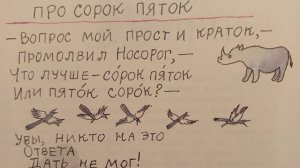 ПРО СОРОК ПЯТОК
—Вопрос мой прост и краток,—
Промолвил Носорог,—
Что лучше—со́рок пя́ток
Или пято́к соро́к?—
Увы, никто на это
Ответа
Дать не мог!